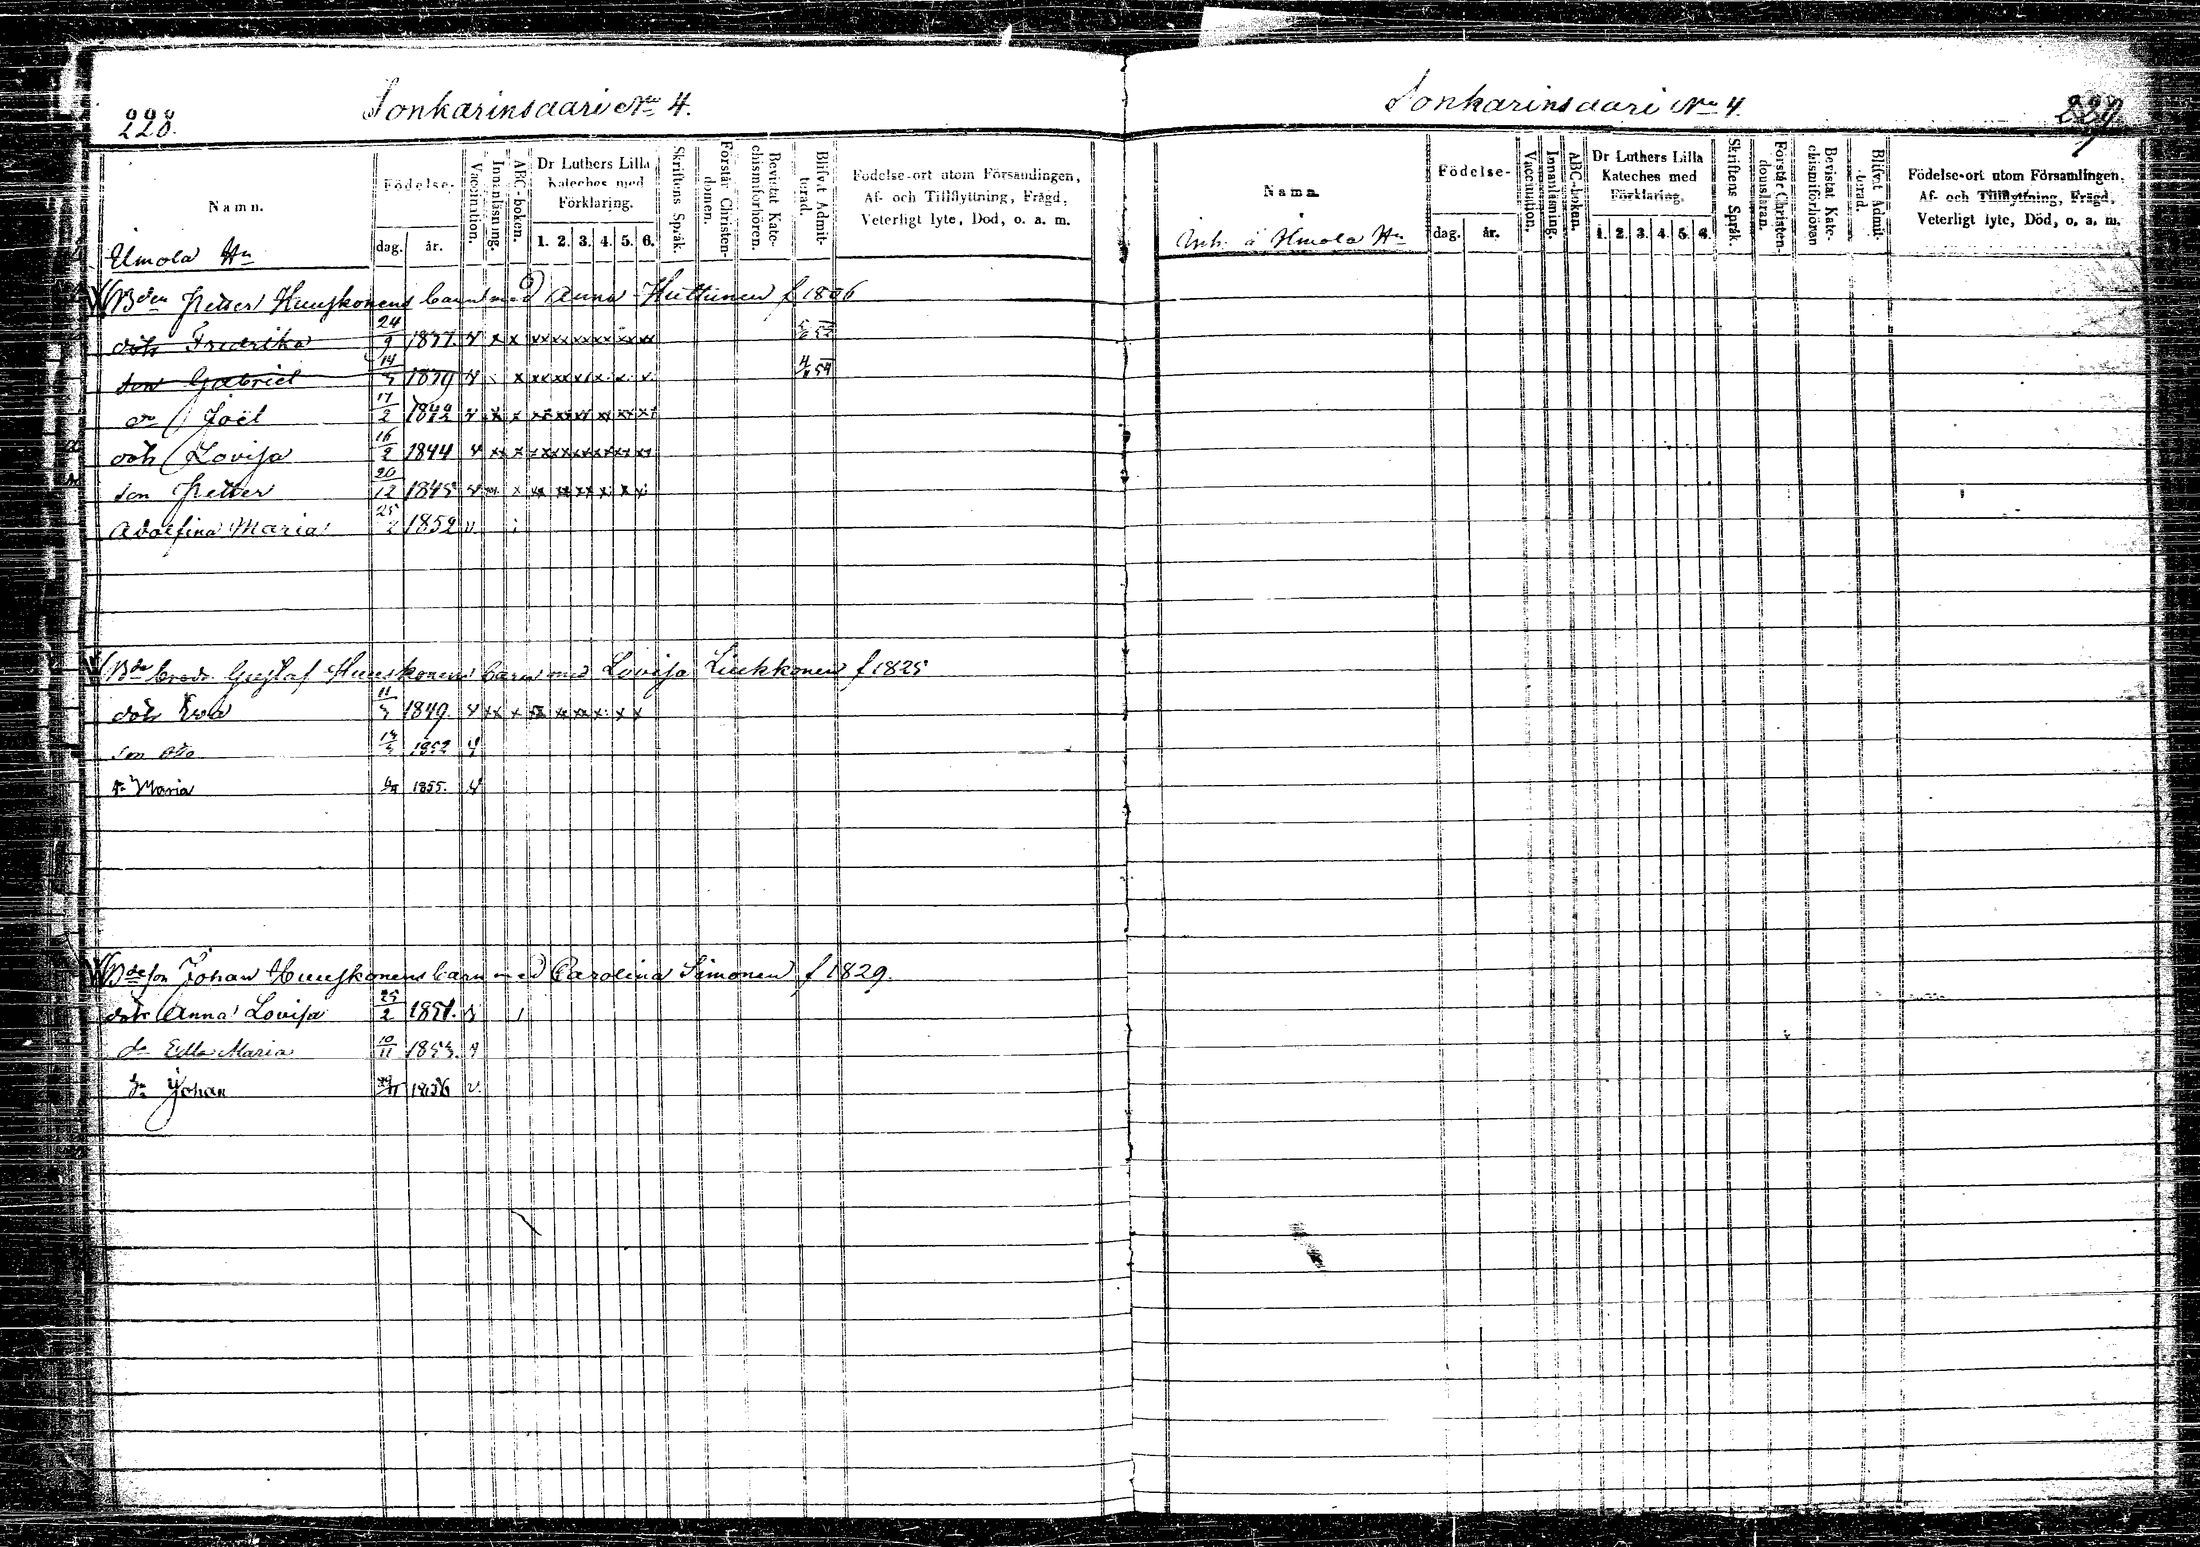 228.
Sonkarinsaari No 4.
Namn.
Födelse-
dag. år.
Vaccination.
Innanläsning.
ABC-boken.
Dr Luthers Lilla
Kateches med
Förklaring.
1. 2. 3. 4. 5. 6.
Skriftens Språk.
Förstår Christen-
domen.
Bevistat Kate-
chismiförhören.
Blifvit Admit-
terad.
Födelse-ort utom Församlingen,
Af- och Tillflyttning, Frägd,
Veterligt lyte, Död, o. a. m.
Ulmola Hn
Bden Petter Huuskonens barn med Anna Huttunen f 1806
dotr Fredrika 24/9 1837. v x x xx xx xx xx xx xx
son Gabriel 1839 v x xx xx x x x x
do Joel 17/2 1842 v x x xx xx xx xx xx xx
dotr Lovisa 16/2 1844 v xx x xx xx xx xx xx xx
son Petter 20/12 1845 v x xx xx xx x x x
Adolfina Maria 25/2 1852 v
Bde brodr Gustaf Huuskonens barn med Lovisa Liukkonen f 1825
dotr Eva 1849. v xx x xx xx xx x x x
son 1852 v
Maria 1855. v
Bde son Johan Huuskonens barn med Carolina Simonen f 1829.
dotr Anna Lovisa 25/2 1851. v
do Edla Maria 10/11 1853. v
Johan 1856 v.
Sonkarinsaari No 4.
229
Namn
Födelse-
dag. år.
Vaccination.
Innanläsning.
ABC-boken.
Dr Luthers Lilla
Kateches med
Förklaring.
1. 2. 3. 4. 5. 6.
Skriftens Språk.
Förstår Christen-
domsläran.
Bevistat Kate-
chismiförhören
Blifvit Admit-
terad.
Födelse-ort utom Församlingen.
Af- och Tillflyttning, Frägd,
Veterligt lyte, Död, o. a. m.
Inh. å Ulmola Hn